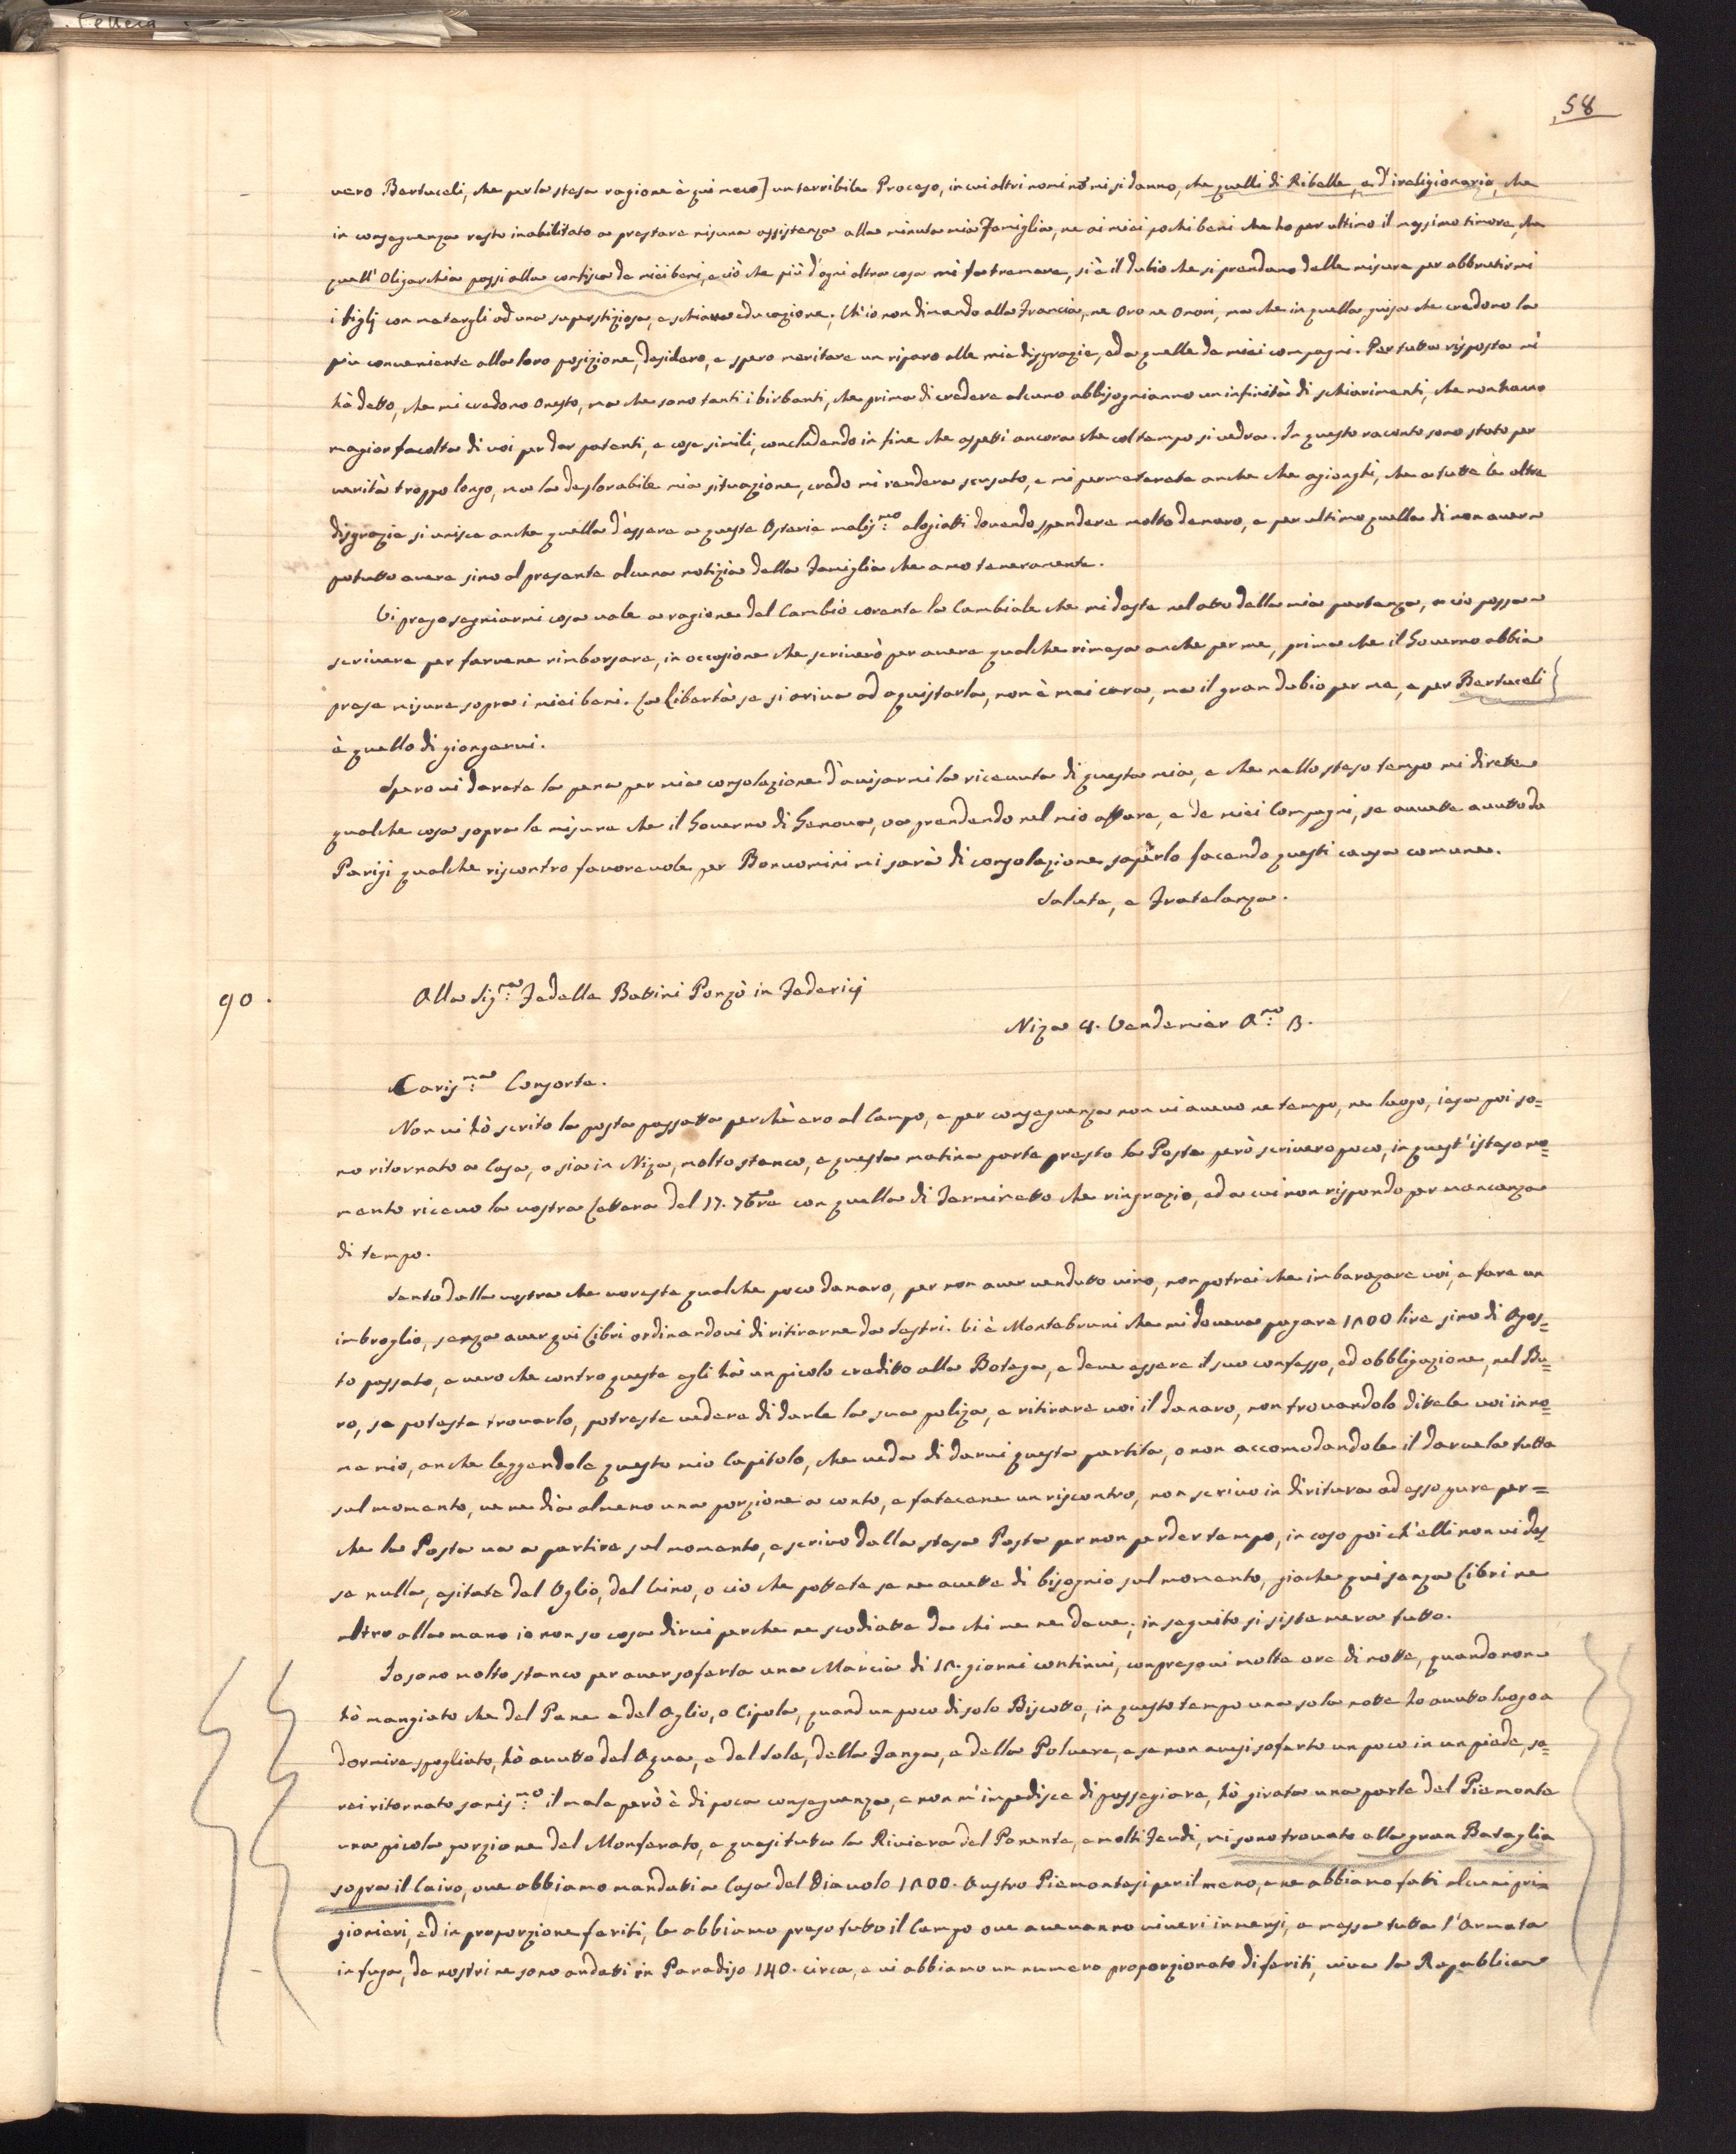 Lettera
58
vero Bertuceli, che per la stesa ragione è qui meco] un terribile Proceso, in cui altri nomi nō mi si danno, che quelli di Ribelle, e d'ireligionario, che
in conseguenza resto inabilitato a prestare nisuna assistenza alla minuta mia Famiglia, ne ai miei pochi beni che ho per ultimo il massimo timore, che
quell'Oligarchia passi alla confisca de miei beni, e ciò che più d'ogni altra cosa mi fa tremare, si è il dubio che si prendano delle misure per abbrutirmi
i figlj con metergli ad una superstiziosa, e schiava educazione. Ch'io non dimando alla Francia, ne Oro ne Onori, ma che in quella guisa che credono la
più conveniente alla loro posizione, desidero, e spero meritare un riparo alle mie disgrazie, ed a quelle de miei compagni. Per tutta risposta mi
hà detto, che mi credono Onesto, ma che sono tanti i birbanti, che prima di credere alcuno abbisognianno un infinità di schiarimenti, che non hanno
magior facolta di voi per dar patenti, e cose simili, concludendo in fine che aspetti ancora che col tempo si vedra. In questo raconto sono stato per
verità troppo longo, ma la deplorabile mia situazione, credo mi rendera scusato, e mi permeterete anche che agionghi, che a tutte le altre
disgrazie si unisce anche quella d'essere a questa Osteria malis:mo alogiati dovendo spendere molto denaro, e per ultimo quella di non aver
potutto avere sino al presente alcuna notizia della Famiglia che amo teneramente.
Vi prego segniarmi cosa vale a ragione del Cambio corente la Cambiale che mi daste nel atto della mia partenza, a ciò possa
scrivere per farvene rimborsare, in occasione che scriverò per avere qualche rimesa anche per me, prima che il Governo abbia
prese misure sopra i miei beni. La Libertà se si ariva ad aquistarla, non è mai cara, ma il gran dubio per me, e per Bertuceli
è quello di giongervi.
Spero vi darete la pena per mia consolazione d'avisarmi la ricevuta di questa mia, e che nello steso tempo mi direte
qualche cosa sopra le misure che il Governo di Genova, va prendendo nel mio affare, e de miei Compagni, se avvette avutto da
Parigi qualche riscontro favorevole per Bonuomini mi sarà di consolazione saperlo facendo questi causa comune.
Salute, e Fratelanza.
90.
Alla Sig:ra Fedelle Battini Ponzò in Federicj
Niza 4. Vendemier A:no 3.
Caris:ma Consorte.
Non vi hò scrito la posta passatta perchè ero al Campo, e per conseguenza non vi avevo ne tempo, ne luogo, iesa poi so=
no ritornato a Casa, o sia in Niza, molto stanco, e questa matina parte presto la Posta però scrivero poco, in quest'isteso mo=
mento ricevo la vostra Lettera del 17. 7bre con quella di Ferminetto che ringrazio, ed a cui non rispondo per mancanza
di tempo.
Sento dalla vostra che voreste qualche poco denaro, per non aver vendutto vino, non potrei che imbarazare voi, e fare un
imbroglio, senza aver qui Libri ordinandovi di ritirarne da Sestri. Vi è Montebruni che mi doveva pagare 1000 lire sino di Agos=
to passato, e vero che contro queste egli hà un picolo creditto alla Botega, e deve essere il suo confesso, ed obbligazione, nel Bu=
ro, se poteste trovarlo, potreste vedere di darle la sua poliza, e ritirare voi il danaro, non trovandolo ditele voi in no=
me mio, anche leggendole questo mio Capitolo, che veda di darvi questa partita, o non accomodandole il darvela tutta
sul momento, ve ne dia almeno una porzione a conto, e fatecene un riscontro, non scrivo in diritura ad esso pure per=
che la Posta va a partire sul momento, e scrivo dalla stesa Posta per non perder tempo, in caso poi ch'elli non vi das=
se nulla, esitate del Oglio, del Vino, o cio che pottete se ne avette di bisognio sul momento, giache qui senza Libri ne
altro alla mano io non so cosa dirvi perche ne scodiatte da chi me ne deve; in seguito si sistemera tutto.
Io sono molto stanco per aver soferta una Marcia di 10. giorni continui, conpresovi molte ore di notte, quando non
hò mangiato che del Pane e del Aglio, o Cipola, quand un poco di solo Biscotto, in questo tempo una sola notte ho avutto luogo a
dormire spogliato, hò avutto del Aqua, e del Sole, della Fanga, e della Polvere, e se non avesi soferto un poco in un piede, sa=
rei ritornato sanis:mo il male però è di poca conseguenza, e non m'impedisce di passegiare, hò girata una parte del Piemonte
una picola porzione del Monferato, e quasi tutta la Riviera del Ponente, e molti Feudi, mi sono trovato alla gran Bataglia
sopra il Cairo, ove abbiamo mandati a Casa del Diavolo 1000. Austro Piemontesi per il meno, e ne abbiamo fati alcuni pri=
gionieri, ed in proporzione feriti, le abbiamo preso tutto il Campo ove avevanno viveri immensi, e messa tutta l'Armata
in fuga, de nostri ne sono andati in Paradiso 140. circa, e vi abbiamo un numero proporzionato di feriti, viva la Republica